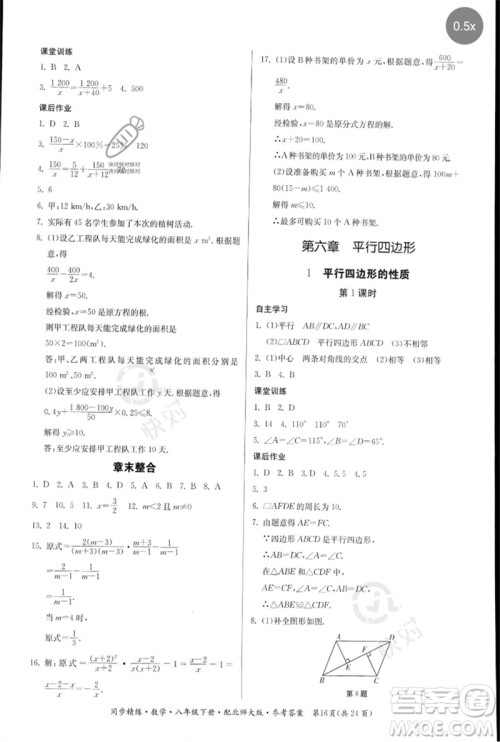 0.5x
课堂训练
1. B 2. A
3. 1 200/x = 1 200/(x+40) + 5 4. 500
课后作业
1. D 2. B
3. (150-x)/x × 100%=25%
4. 150/x = 5/12 + 150/
5. 6
6. 甲:12 km/h,乙:30 km/h.
7. 实际有 45 名学生参加了本次的植树活动.
8. (1)设乙工程队每天能完成绿化的面积是 x m²,
根据题意,得
400/x - 400/2x = 4.
解得 x=50.
经检验,x=50 是原方程的根.
则甲工程队每天能完成绿化的面积是
50×2=100(m²).
答:甲、乙两工程队每天能完成绿化的面积分别是 100 m²、50 m².
(2)设至少应安排甲工程队工作 y 天,根据题意,得
0.4y + (1 800-100y)/50 × 0.25≤8.
解得 y≥10.
答:至少应安排甲工程队工作 10 天.
章末整合
1. D 2. A 3. A 4. C 5. B 6. D 7. D 8. D
9. 17 10. 7 11. x=3/2 12. m<2 且 m≠0
13. 2 14. 10
15. 原式= 2(m-3)/(m+3)(m-3) · (m+3)/(m-1)
= 2/(m-1) - 1/(m-1)
= 1/(m-1).
当 m=4 时,
原式= 1/3.
16. 解:原式= (x+2)²/x · x/(x+2) - 1=x+2-1=x+1.
17. (1)设 B 种书架的单价为 x 元,根据题意,得 600/(x+20) =
480/x.
解得 x=80.
经检验,x=80 是原分式方程的解.
∴x+20=100.
答:A 种书架的单价为 100 元,B 种书架的单价为 80 元.
(2)设准备购买 m 个 A 种书架,根据题意,得 100m+
80(15-m)≤1400.
解得 m≤10.
答:最多可购买 10 个 A 种书架.
第六章 平行四边形
1 平行四边形的性质
第 1 课时
自主学习
1. (1)平行 AB∥DC AD∥BC
(2)□ABCD 平行四边形 ABCD 不相邻
2. (1)中心 两条对角线的交点 (2)相等 相等
3. B 4. B
课堂训练
1. B 2. D
3. 14 4. 110° 70° 110°
5. ∠A=∠C=115°,∠B=∠D=65°.
课后作业
1. D 2. B 3. B 4. A
5. 3
6. □AFDE 的周长为 10.
7. 由题意得 AE=FC.
∵四边形 ABCD 是平行四边形,
∴AB=CD,∠A=∠C.
在△ABE 和△CDF 中,
AE=CF,∠A=∠C,AB=CD,
∴△ABE≌△CDF.
∴BE=DF.
8. (1)补全图形如图:
A D
B C
第 8 题
同步精练·数学·八年级下册·配北师大版·参考答案 第16页(共 24 页)
快对